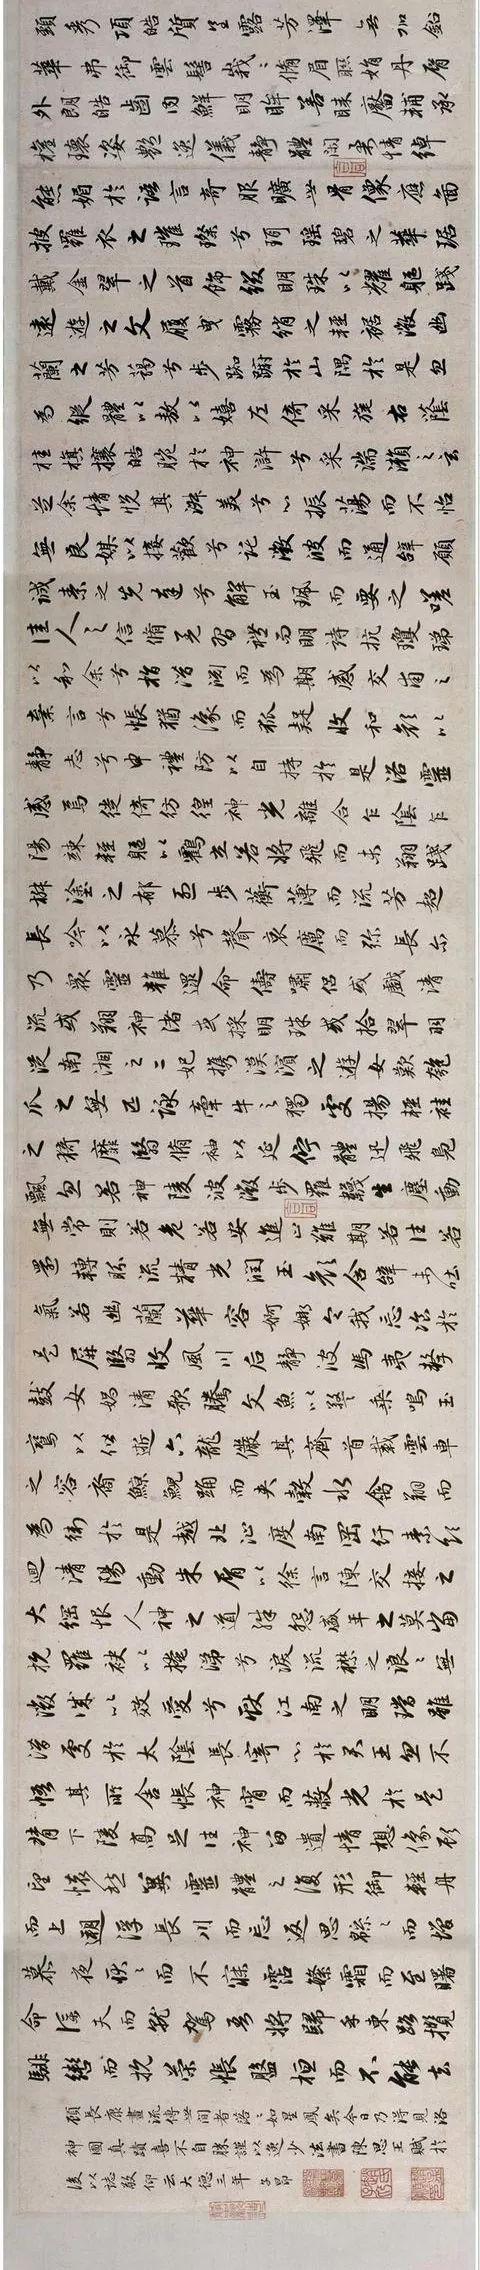 頸秀項皓質呈露芳澤無加鉛
華弗御雲髻峩〻脩眉聮娟丹脣
外朗皓齒內鮮明眸善睞靨輔承
權瓌姿艷逸儀靜體閑柔情綽
態媚於語言奇服曠世骨像應圖
披羅衣之璀璨兮珥瑶碧之華琚
戴金翠之首飾綴明珠以耀軀踐
遠遊之文履曳霧綃之輕裾微幽
蘭之芳藹兮步踟躕於山隅於是忽
焉縱體以敖以嬉左倚采旄右蔭
桂旗攘皓腕於神滸兮采湍瀨之玄
芝余情悅其淑美兮心振蕩而不怡
無良媒以接歡兮託微波而通辭願
誠素之先達兮解玉珮而要之嗟
佳人之信脩羌習禮而明詩抗瓊珶
以和余兮指潛淵而為期感交甫之
棄言兮悵猶豫而狐疑收和顏以
靜志兮申禮防以自持於是洛靈
感焉徙倚彷徨神光離合乍陰乍
陽竦輕軀以鶴立若將飛而未翔踐
椒塗之郁烈步蘅薄而流芳超
長吟以永慕兮聲哀厲而彌長尔
乃衆靈雜遝命儔嘯侶或戲清
流或翔神渚或採明珠或拾翠羽
從南湘之二妃携漢濱之遊女歎匏
瓜之無匹詠牽牛之獨處揚輕袿
之猗靡翳脩袖以延佇體迅飛鳧
飄忽若神陵波微步羅韈生塵動
無常則若危若安進止難期若往若
還轉盼流精光潤玉顏含辭未吐
氣若幽蘭華容婀娜令我忘飡於
是屏翳收風川后靜波馮夷擊
鼓女媧清歌騰文魚以警乘鳴玉
鸞以偕逝六龍儼其齊首載雲車
之容裔鯨鯢踊而夾轂水禽翔而
為衛於是越北沚度南岡紆素領
迴清陽動朱脣以徐言陳交接之
大綱恨人神之道殊怨盛年之莫當
抗羅袂以掩涕兮淚流襟之浪〻無
微誠以效愛兮獻江南之明璫雖
潛處於太陰長寄心於君王忽不
悟其所舍悵神宵而蔽光於是
背下陵高足往神留遺情想像顧
望懷愁冀靈體之復形御輕舟
而上遡浮長川而忘返思緜〻而增
慕夜耿〻而不寐霑繁霜而至曙
命僕夫而就駕吾將歸乎東路攬
騑轡而抗策悵盤桓而不能去
顧長康畫流傳世間者落〻如星鳳矣今日乃得見洛
神圖真蹟喜不自勝謹以逸少法書陳思王賦於
後以誌敬仰云大德三年 子昂